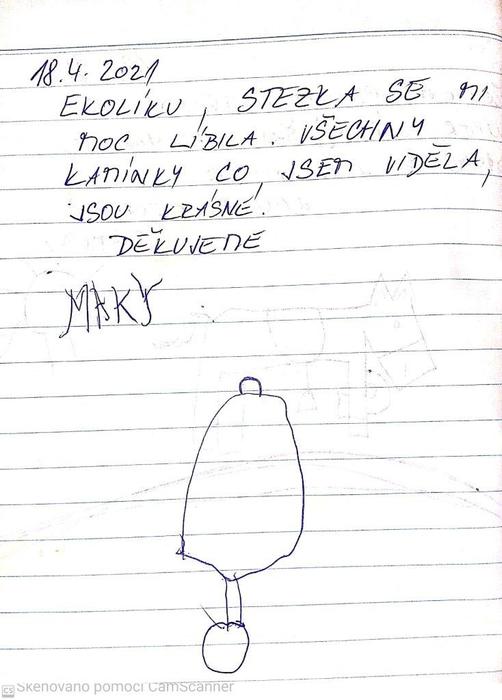 18.4.2021
EKOLÍKU, STEZKA SE MI
MOC LÍBILA. VŠECHNY
KAMÍNKY CO, JSEM VIDĚLA,
JSOU KRÁSNÉ.
DĚKUJEME
MAKY
CS Skenováno pomocí CamScanner